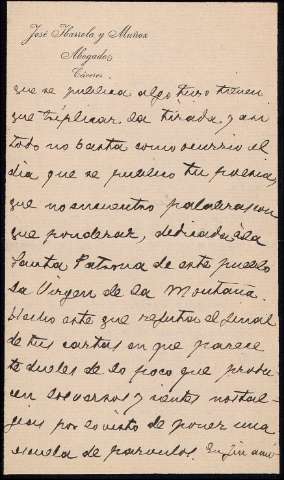 José Ibarrola y Muñoz
Abogado
Cáceres
que se publica algo tuyo tienen
que triplicar la tirada, y aun
todo no basta como ocurrio el
dia que se publico tu poesia,
que no encuentro palabras con
que ponderar, dedicada á la
Santa Patrona de este pueblo
La Virgen de la Montaña.
Hecho este que refuta el final
de tus cartas en que parece
te dueles de lo poco que produ-
cen los versos y sientes nostal-
gias por lo visto de poner una
escuela de parvulos. En fin